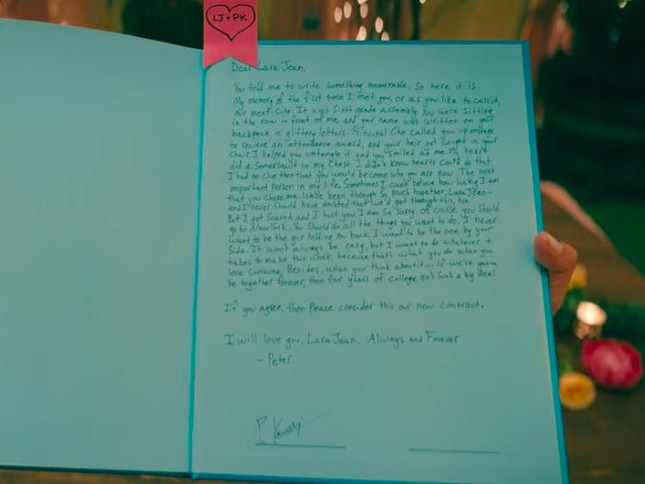 LJ + PK
Dear Lara Jean,
You told me to write something memorable, so here it is
My memory of the first time I met you, or as you like to call it,
our meet-cute. It was sixth grade assembly. You were sitting
in the row in front of me, and your name was written on your
backpack in glittery letters. Principal Cho called you up on stage
to receive an attendance award, and your hair got caught in your
chair. I helped you untangle it, and you smiled at me. My heart
did a somersault in my chest. I didn't know hearts could do that.
I had no clue then that you would become who you are now. The most
important person in my life. Sometimes I can't believe how lucky I am
that you chose me. We've been through so much together, Lara Jean—
and I never should have doubted that we'd get through this, too.
But I got scared, and I hurt you. I am so sorry. Of course you should
go to New York. You should do all the things you want to do. I never
want to be the guy holding you back. I want to be the one by your
side. It won't always be easy, but I want to do whatever it
takes to make this work, because that's what you do when you
love someone. Besides, when you think about it... if we're gonna
be together forever, then four years of college isn't such a big deal.
If you agree, then please consider this our new contract.
I will love you, Lara Jean. Always and Forever
— Peter
P. Kavinsky